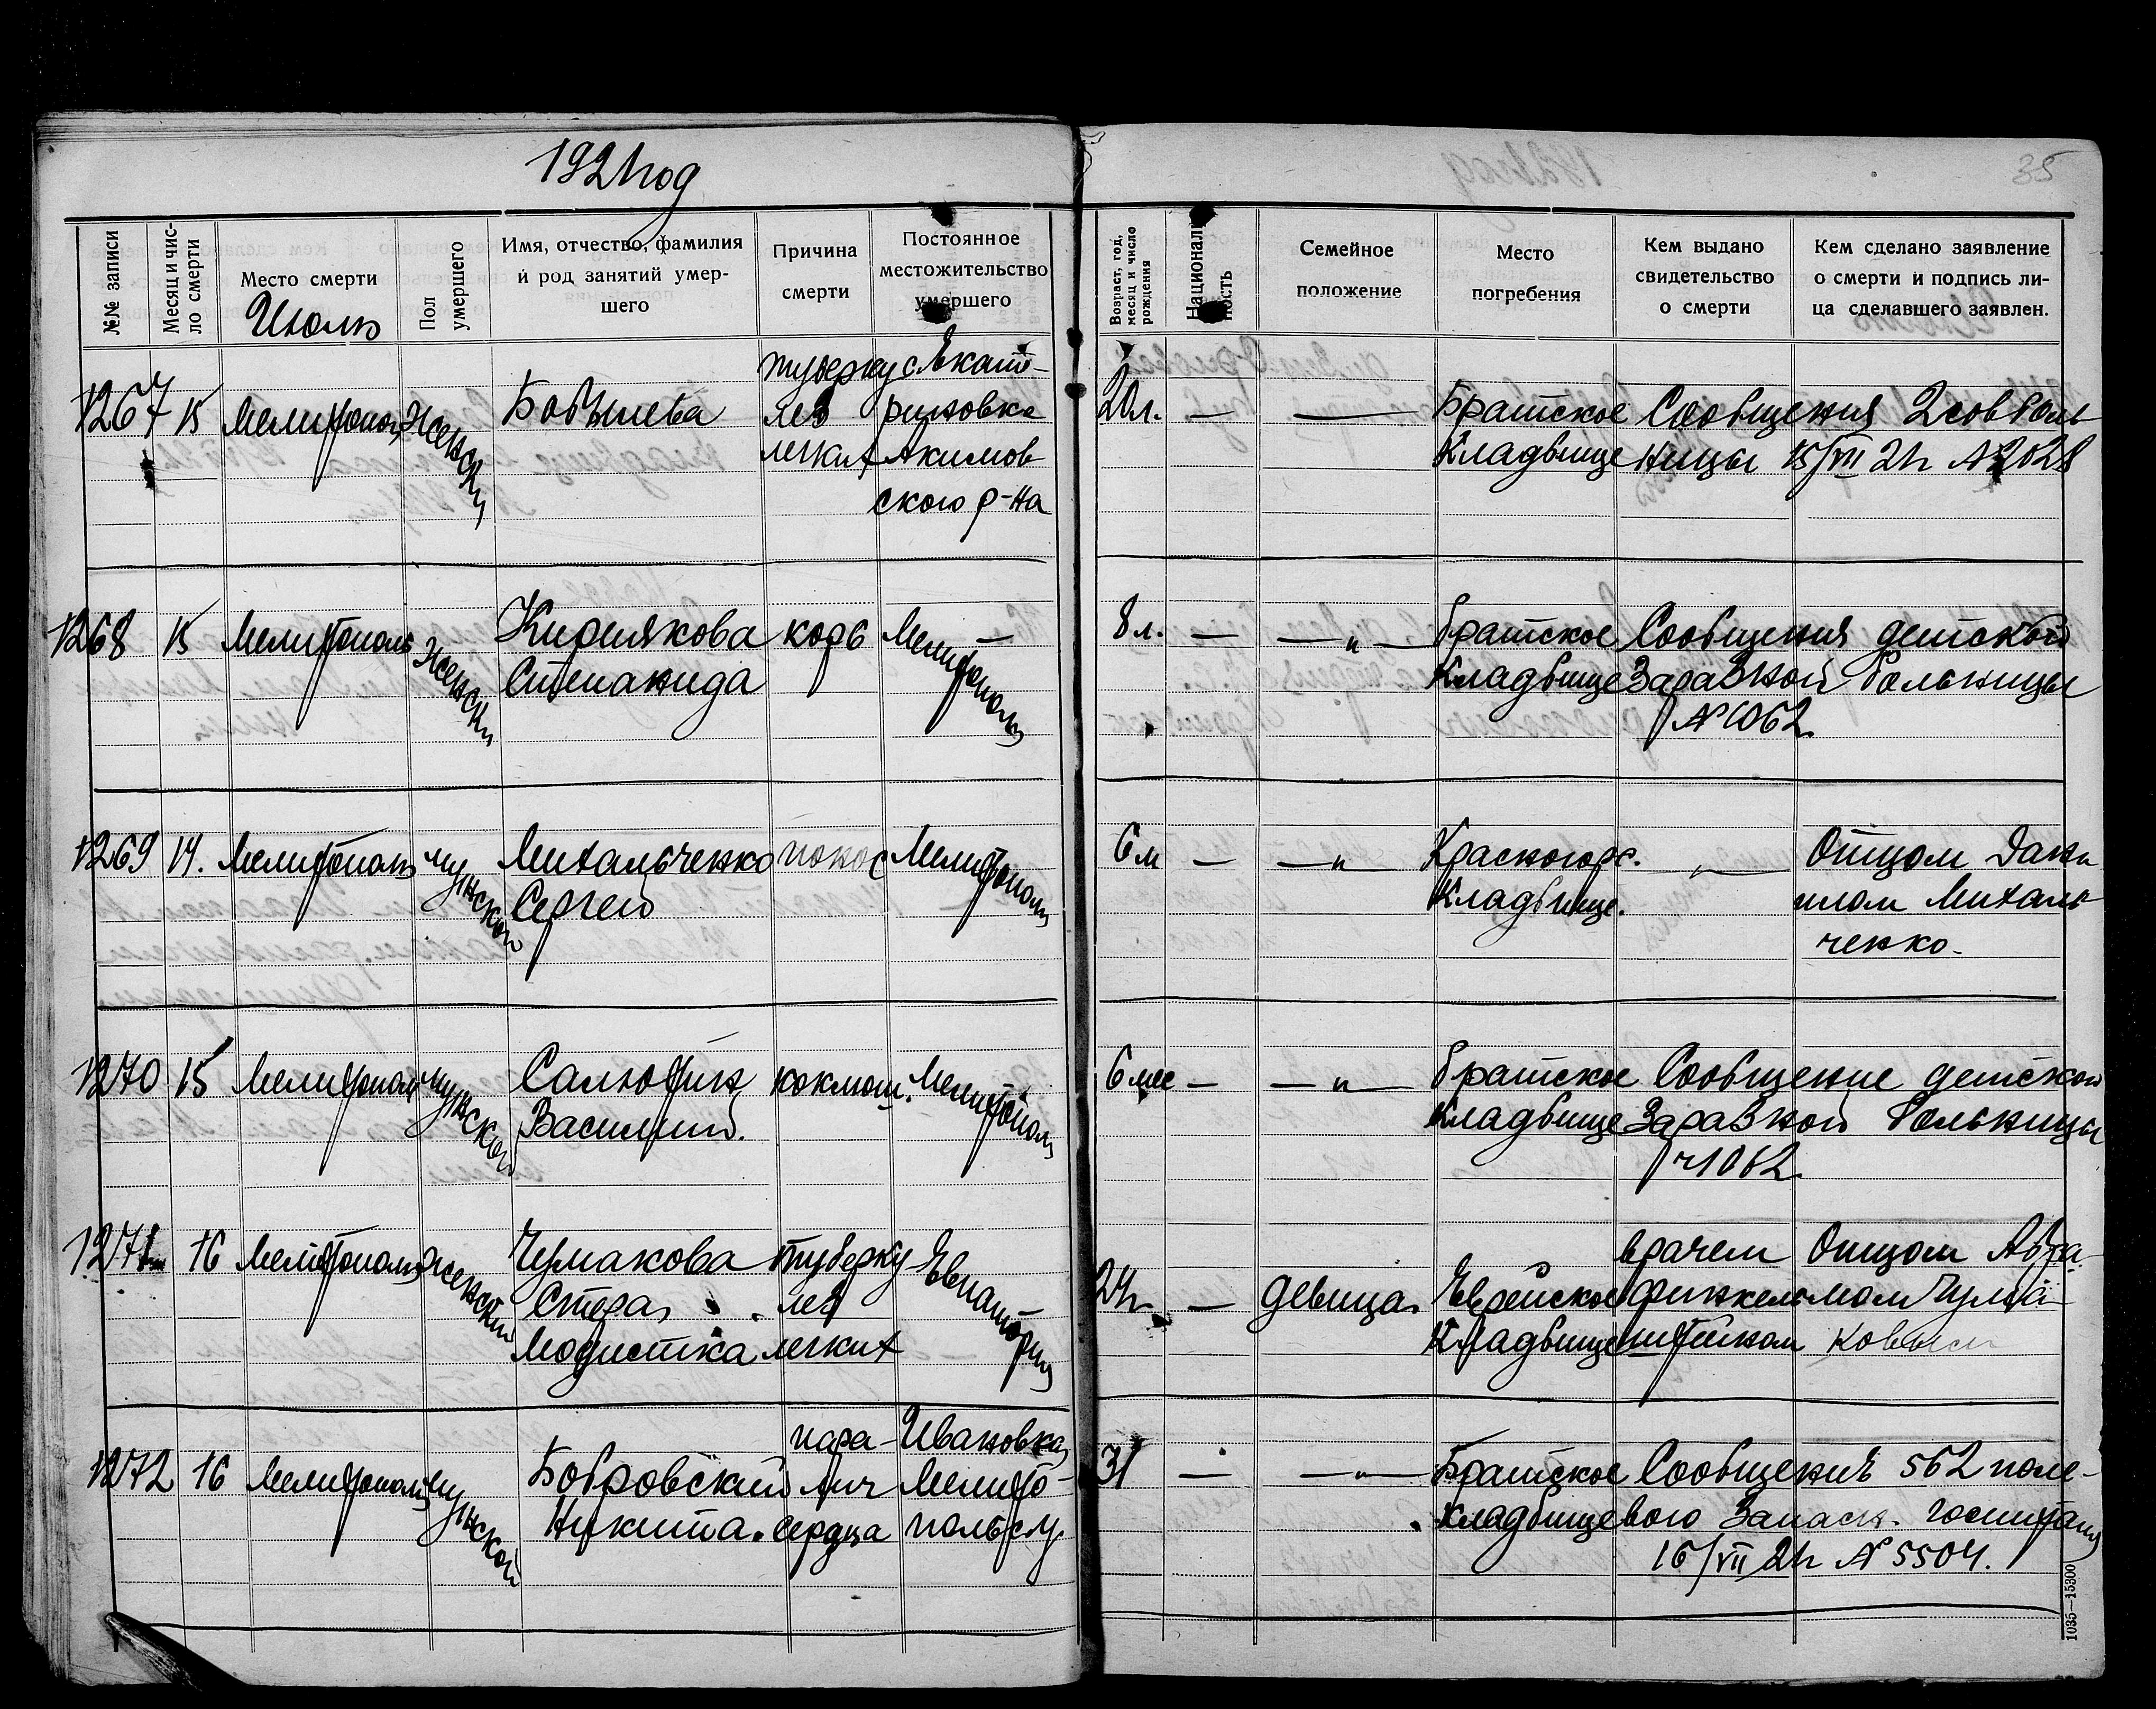 1921 год
35
№№ записи
Месяц и чис-
ло смерти
Место смерти
Июль
Пол
умершего
Имя, отчество, фамилия
и род занятий умер-
шего
Причина
смерти
Постоянное
местожительство
умершего
Возраст, год,
месяц и число
рождения
Националь-
ность
Семейное
положение
Место
погребения
Кем выдано
свидетельство
о смерти
Кем сделано заявление
о смерти и подпись ли-
ца сделавшего заявлен.
1267 15 Мелитополь Женский Бобылева туберку
лез
легких с Екате-
риновка
Акимов
ского р-на
20 л. — — Братское
Кладбище
Сообщения 2 сов боль
ницы 15/VII 21 г № 2028
1268 15 Мелитополь Женский
Кирлякова
Степанида
корь Мелитополь
8 л. — — „ — братское
Кладбище
Сообщения детской
Заразной больницы
№ 1062
1269 14. Мелитополь мужской
Михальченко
Сергей
понос Мелитополь
6 м — — „ — Красногорс.
Кладбище.
— „ —
Отцом Дани
илом Михаль
ченко.
1270 15 Мелитополь мужской
Василий.
коклюш. Мелитополь
6 мес — — „ — братское
Кладбище
Сообщение детской
Заразной больницы
ч 1062
1271 16 Мелитополь Женский
Чумакова
Стера
Модистка
туберку
лез
легких
Евпатория
21 г — девица. Еврейское
Кладбище
врачем
Финкель
штейном
Отцом Абра-
мом Чума-
ковым
1272 16 Мелитополь мужской
Бобровский
Никита.
пара-
лич
сердца
Ивановка,
Мелито-
польс у.
31 — — „ — Братское
Кладбище
Сообщения 562 поле-
вого Запасн. госпиталя
16/VII 21 г № 5504.
1035—15300